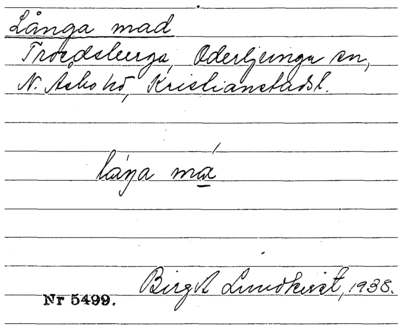 Långa mad
Troedsberga, Oderljunga sn,
N. Åsbo hd, Kristianstads l.
låŋa mɑ́
Birgit Lundkvist, 1938.
Nr 5499.